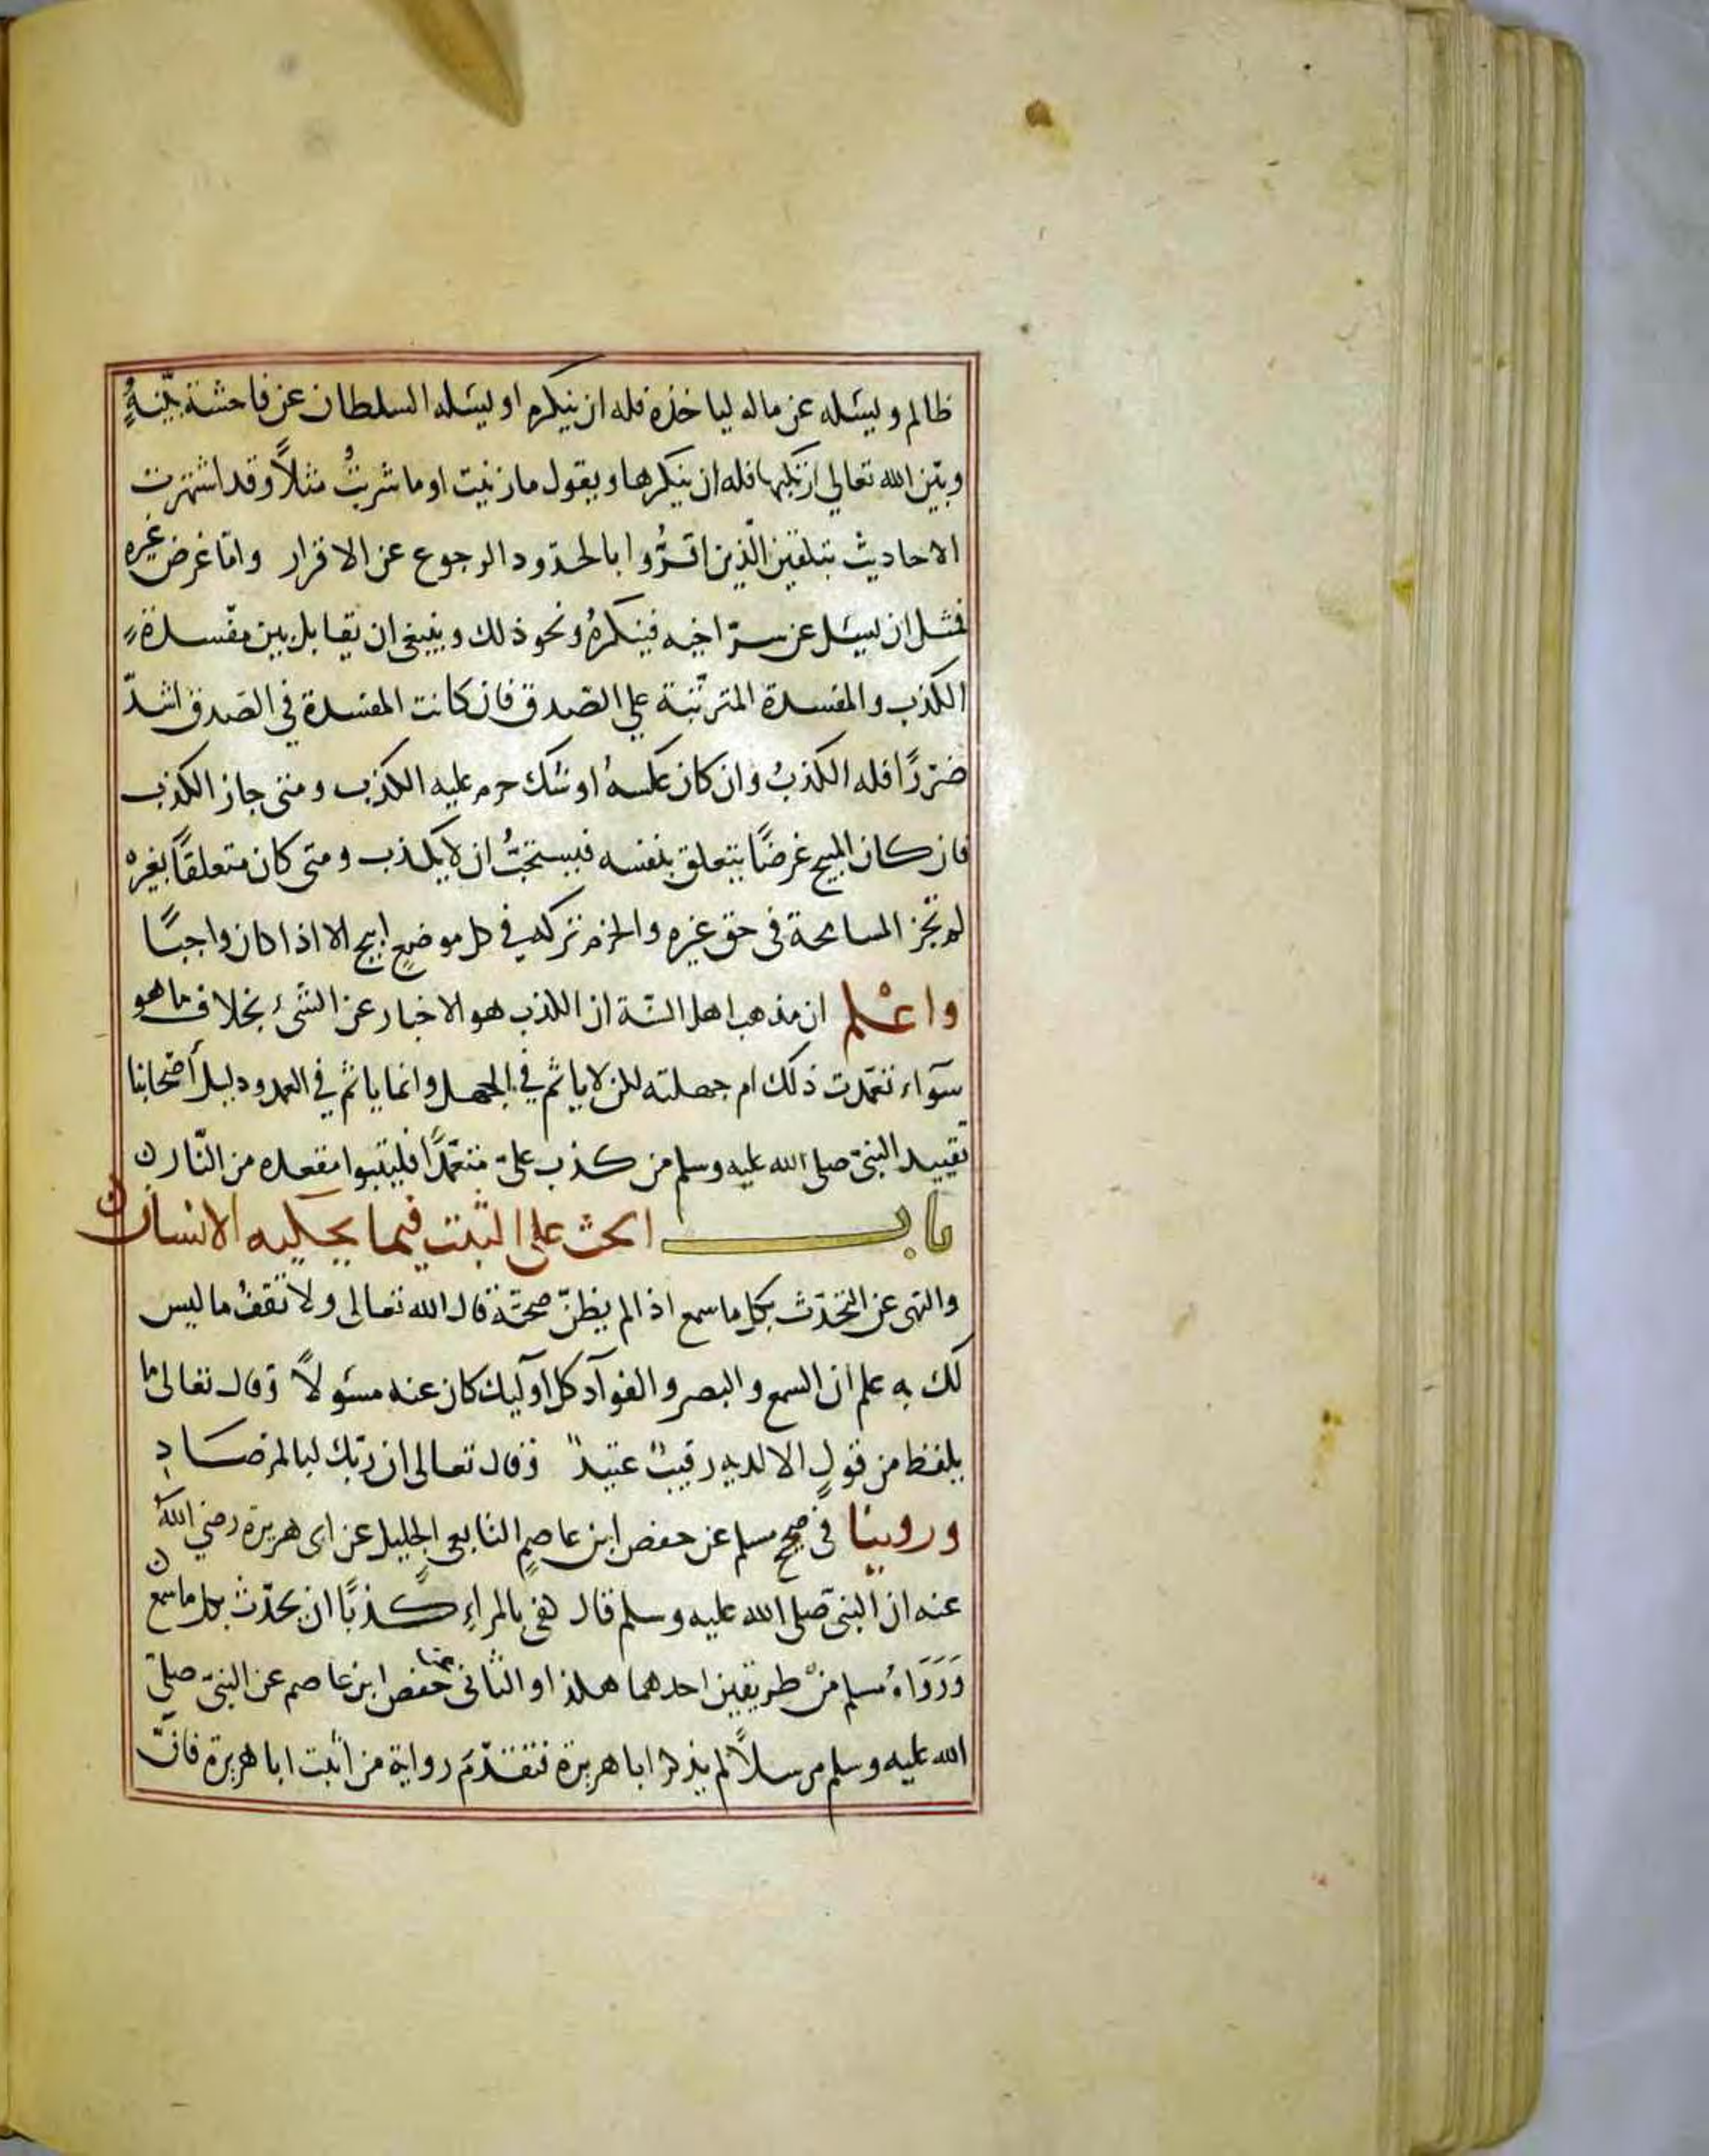 ظالم ويسئله عن ماله لياخذه فله ان ينكره او يسئله السلطان عن فاحشة بينهُ
وبين الله تعالي ارتكبها فله ان ينكرها ويقول ما زنيت او ما شربتُ مثلاً وقد اشتهرت
الاحاديث بتلقين الّذين اقرُّوا بالحدود الرجوع عن الاقرار وامّا غرض غيره
فمثل ان يسئل عن سرّ اخيه فينكرهُ ونحو ذلك وينبغي ان يقابل بين مفسدة
الكذب والمفسدة المترتّبة علي الصّدق فان كانت المفسدة في الصّدق اشدّ
ضررًا فله الكذبُ وان كان عكسهُ او شك حرم عليه الكذب ومتي جاز الكذب
فان كان المبيح غرضًا يتعلق بنفسه فيستحبُّ ان لا يكذب ومتي كان متعلقًا بغيره
لم تجز المسامحة في حق غيره والحزم تركه في كل موضعٍ ابيح الا اذا كان واجبًا
واعْلم ان مذهب اهل السّنة ان الكذب هو الاخبار عن الشّيء بخلاف ما هو
سوآء تعمّدت ذلك ام جهلته لكن لا ياثم في الجهل وانما ياثم في العمد ودليل أصحابنا
تقييد النبيّ صلى الله عليه وسلم من كذب عليّ متعمّدًا فليتبوا مقعده من النّار ن
باب الحث على التثبت فيما يحكيه الانسان
والنهى عن التحدّث بكل ما سمع اذا لم يظنّ صحتّة قال الله تعالى ولا تقفُ ما ليس
لك به علم ان السمع والبصر والفوآد كل اوليك كان عنه مسئولاً وقال تعالى ما
يلفظ من قولٍ الا لديه رقيبٌ عتيدٌ وقال تعالى ان ربّك لبالمرصادِ
وروينا في صحيح مسلم عن حفص ابن عاصمٍ التابعي الجليل عن ابى هريرة رضي اللهُ
عنه ان النبيّ صلى الله عليه وسلم قال كفى بالمراءِ كذبًا ان يحدّث بكل ما سمع ن
وَرَوَاهُ مسلم منْ طريقين احدهما هكذا والثانى عن حفص ابن عاصم عن النبيّ صلىّ
الله عليه وسلم مرسلاً لم يذكر ابا هريرة فتقدّم رواية من اثبت ابا هريرة فانّ